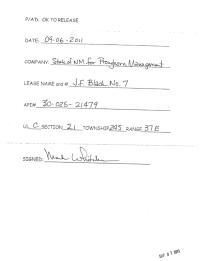 P/AD. OK TO RELEASE
DATE: 09-06-2011
COMPANY: State of NM for Pronghorn Management
LEASE NAME and # J.F. Black No. 7
API# 30-025-21479
UL C SECTION 21 TOWNSHIP 24S RANGE 37E
SIGNED: Mark Whitaker
SEP 07 2011